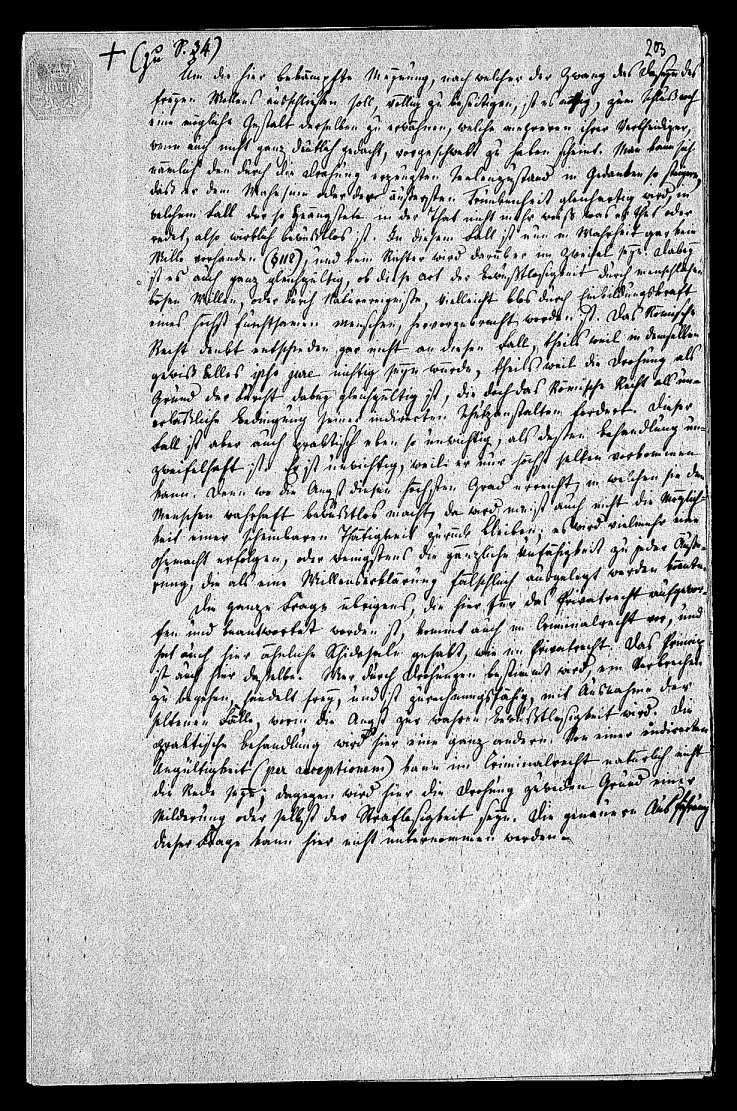 + (zu S. 34)
203
Um die hier bekämpfte Meynung, nach welcher der Zwang das Daseyn des
freyen Willens ausschließen soll, völlig zu beseitigen, ist es nöthig, zum Schluß noch
eine mögliche Gestalt derselben zu erwähnen, welche mehreren ihrer Vertheidiger,
wenn auch nicht ganz deutlich gedacht, vorgeschwebt zu haben scheint. Man kann sich
nämlich den durch die Drohung erzeugten Seelenzustand in Gedanken so steigern,
daß er dem Wahnsinn oder der äußersten Trunkenheit gleichartig wird, in
welchem Fall der so Geängstete in der That nicht mehr weiß was er thut oder
redet, also wirklich bewußtlos ist. In diesem Fall ist nun in Wahrheit gar kein
Wille vorhanden (§ 112), und kein Richter wird darüber im Zweifel seyn. Dabey
ist es auch ganz gleichgültig, ob diese Art der Bewußtlosigkeit durch menschlichen
bösen Willen, oder durch Naturereignisse, vielleicht blos durch Einbildungskraft
eines höchst furchtsamen Menschen, hervorgebracht worden ist. Das Römische
Recht denkt entschieden gar nicht an diesen Fall, theils weil in demselben
gewiß Alles ipso jure nichtig seyn würde, theils weil die Drohung als
Grund der Furcht dabey gleichgültig ist, die doch das Römische Recht als un-
erlaßliche Bedingung seiner indirecten Schutzanstalten fordert. Dieser
Fall ist aber auch praktisch eben so unwichtig, als dessen Behandlung un-
zweifelhaft ist. Er ist unwichtig, weil er nur höchst selten vorkommen
kann. Denn wo die Angst diesen höchsten Grad erreicht, in welchem sie den
Menschen wahrhaft bewußtlos macht, da wird meist auch nicht die Möglich-
keit einer scheinbaren Thätigkeit zurück bleiben; es wird vielmehr eine
Ohnmacht erfolgen, oder wenigstens die gänzliche Unfähigkeit zu jeder Äuße-
rung, die als eine Willenserklärung fälschlich ausgelegt werden könnte.
Die ganze Frage übrigens, die hier für das Privatrecht aufgewor-
fen und beantwortet worden ist, kommt auch im Criminalrecht vor, und
hat auch hier ähnliche Schicksale gehabt, wie im Privatrecht. Das Princip
ist auch hier dasselbe. Wer durch Drohungen bestimmt wird, ein Verbrechen
zu begehen, handelt frey, und ist zurechnungsfähig, mit Ausnahme der
seltenen Fälle, worin die Angst zur wahren Bewußtlosigkeit wird. Die
praktische Behandlung wird hier eine ganz andere. Von einer indirecten
Ungültigkeit (per exceptionem) kann im Criminalrecht natürlich nicht
die Rede seyn; dagegen wird hier die Drohung zuweilen Grund einer
Milderung oder selbst der Straflosigkeit seyn. Die genauere Ausführung
dieser Frage kann hier nicht unternommen werden.